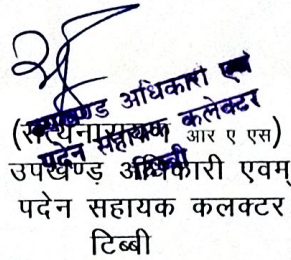 उपखण्ड अधिकारी एवं
पदेन सहायक कलेक्टर
टिब्बी
(सत्यनारायण आर ए एस)
उपखण्ड़ अधिकारी एवम्
पदेन सहायक कलक्टर
टिब्बी